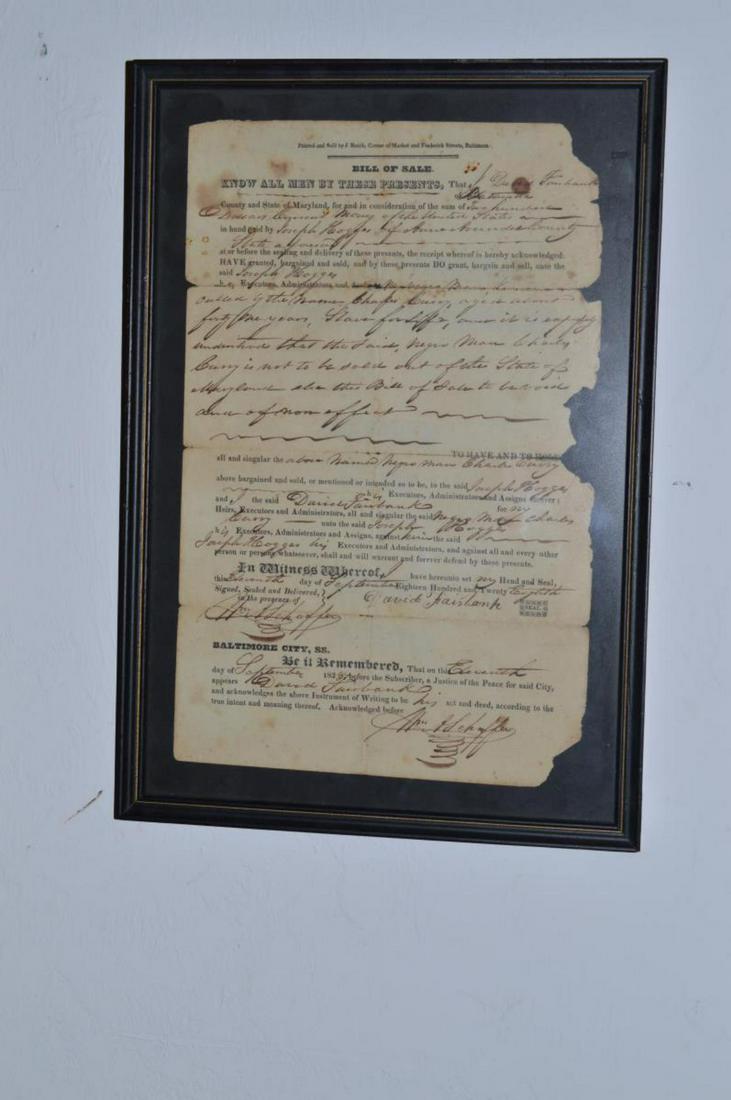 Printed and Sold by J. Smith, Corner of Market and Frederick Streets, Baltimore.
BILL OF SALE.
KNOW ALL MEN BY THESE PRESENTS, That I David Fairbank
County and State of Maryland, for and in consideration of the sum of
Dollars Current Money of the United States
in hand paid by Joseph Hogges of Anne Arundel County
State aforesaid
at or before the sealing and delivery of these presents, the receipt whereof is hereby acknowledged:
HAVE granted, bargained and sold, and by these presents DO grant, bargain and sell, unto the
said Joseph Hogges
his Executors, Administrators and
called by the Name Charles Curry, aged about
forty five years, Slave for Life, and it is
understood that the Said, Negro Man Charles
Curry is not to be sold out of the State of
Maryland else this Bill of Sale to be void
and of non effect
TO HAVE AND TO HOLD
all and singular the above Named Negro Man Charles Curry
above bargained and sold, or mentioned or intended so to be, to the said Joseph Hogges
his Executors, Administrators and Assigns forever;
and I the said David Fairbank for my
Heirs, Executors and Administrators, all and singular the said Negro Man Charles
Curry unto the said Joseph Hogges
his Executors, Administrators and Assigns, against the said
Joseph Hogges his Executors and Administrators, and against all and every other
person or persons whatsoever, shall and will warrant and forever defend by these presents.
In Witness Whereof, I have hereunto set my Hand and Seal,
this Eleventh day of September Eighteen Hundred and Twenty
Signed, Sealed and Delivered,
in the presence of
David Fairbank
SEAL
Wm A Schaffer
BALTIMORE CITY, SS.
Be it Remembered, That on the Eleventh
day of September 182 before the Subscriber, a Justice of the Peace for said City,
appears David Fairbank
and acknowledges the above Instrument of Writing to be his act and deed, according to the
true intent and meaning thereof. Acknowledged before
Wm A Schaffer